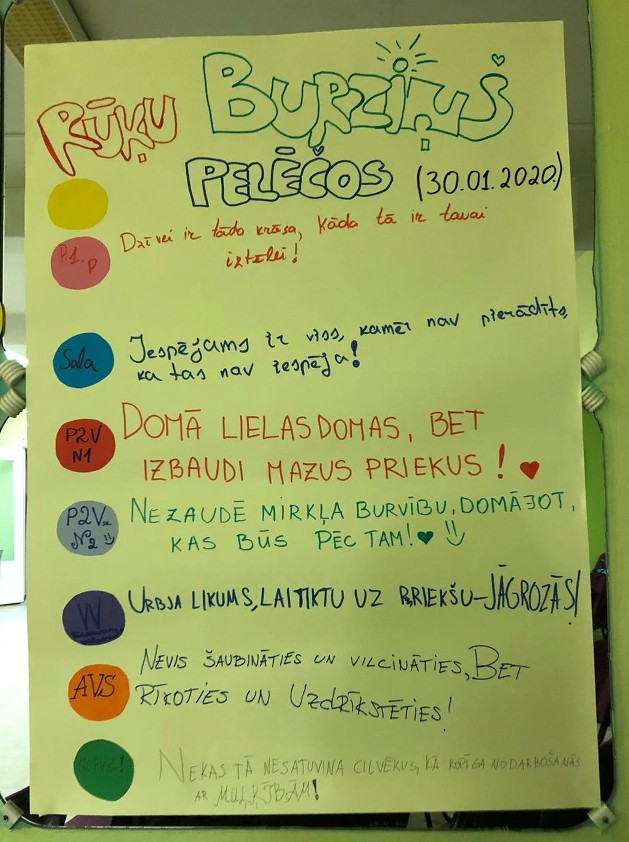 RŪĶU BURZIŅŠ
PELĒČOS (30.01.2020.)
P.1.P
Dzīvei ir tāda krāsa, kāda tā ir tavai
iztēlei!
Sala
Iespējams ir viss, kamēr nav pierādīts,
ka tas nav iespēja!
P2V
N1
DOMĀ LIELAS DOMAS, BET
IZBAUDI MAZUS PRIEKUS!
P2V
N2
NEZAUDĒ MIRKĻA BURVĪBU, DOMĀJOT,
KAS BŪS PĒC TAM!
W
URBJA LIKUMS, LAI TIKTU UZ PRIEKŠU-JĀGROZĀS!
AVS
NEVIS ŠAUBINĀTIES UN VILCINĀTIES, BET
RĪKOTIES UN UZDRĪKSTĒTIES!
NEKAS TĀ NESATUVINA CILVĒKUS, KĀ KOPĪGA NODARBOŠANĀS
AR MUĻĶĪBĀM!